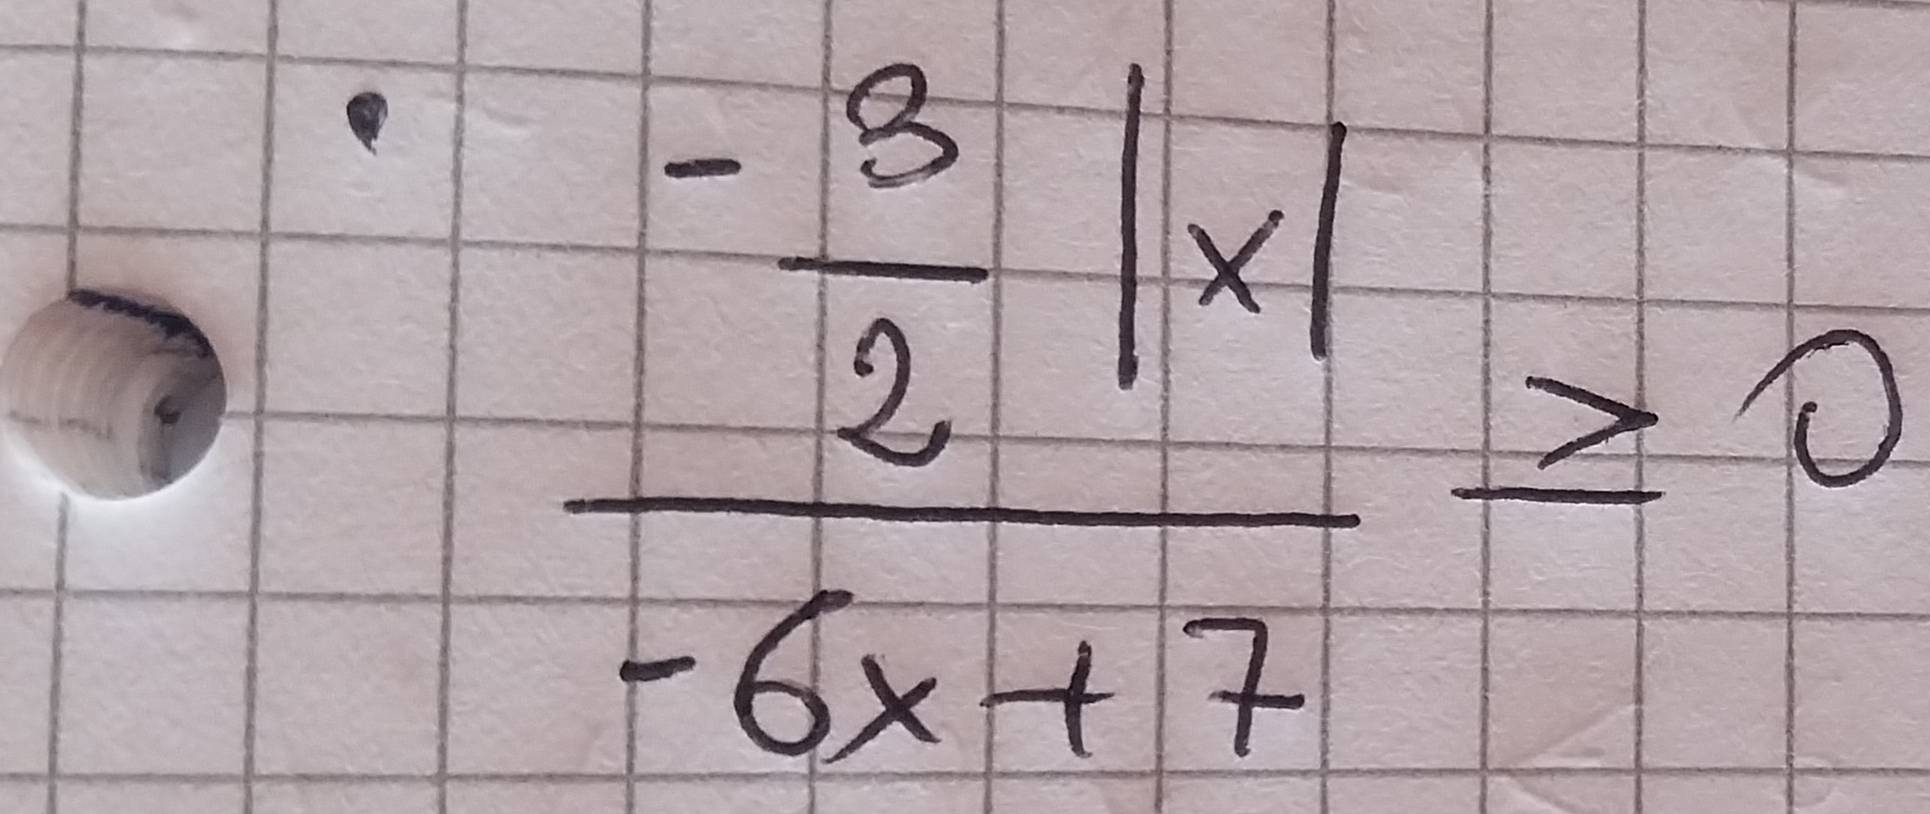 • (-3/2 |x|)/(-6x+7) ≥ 0